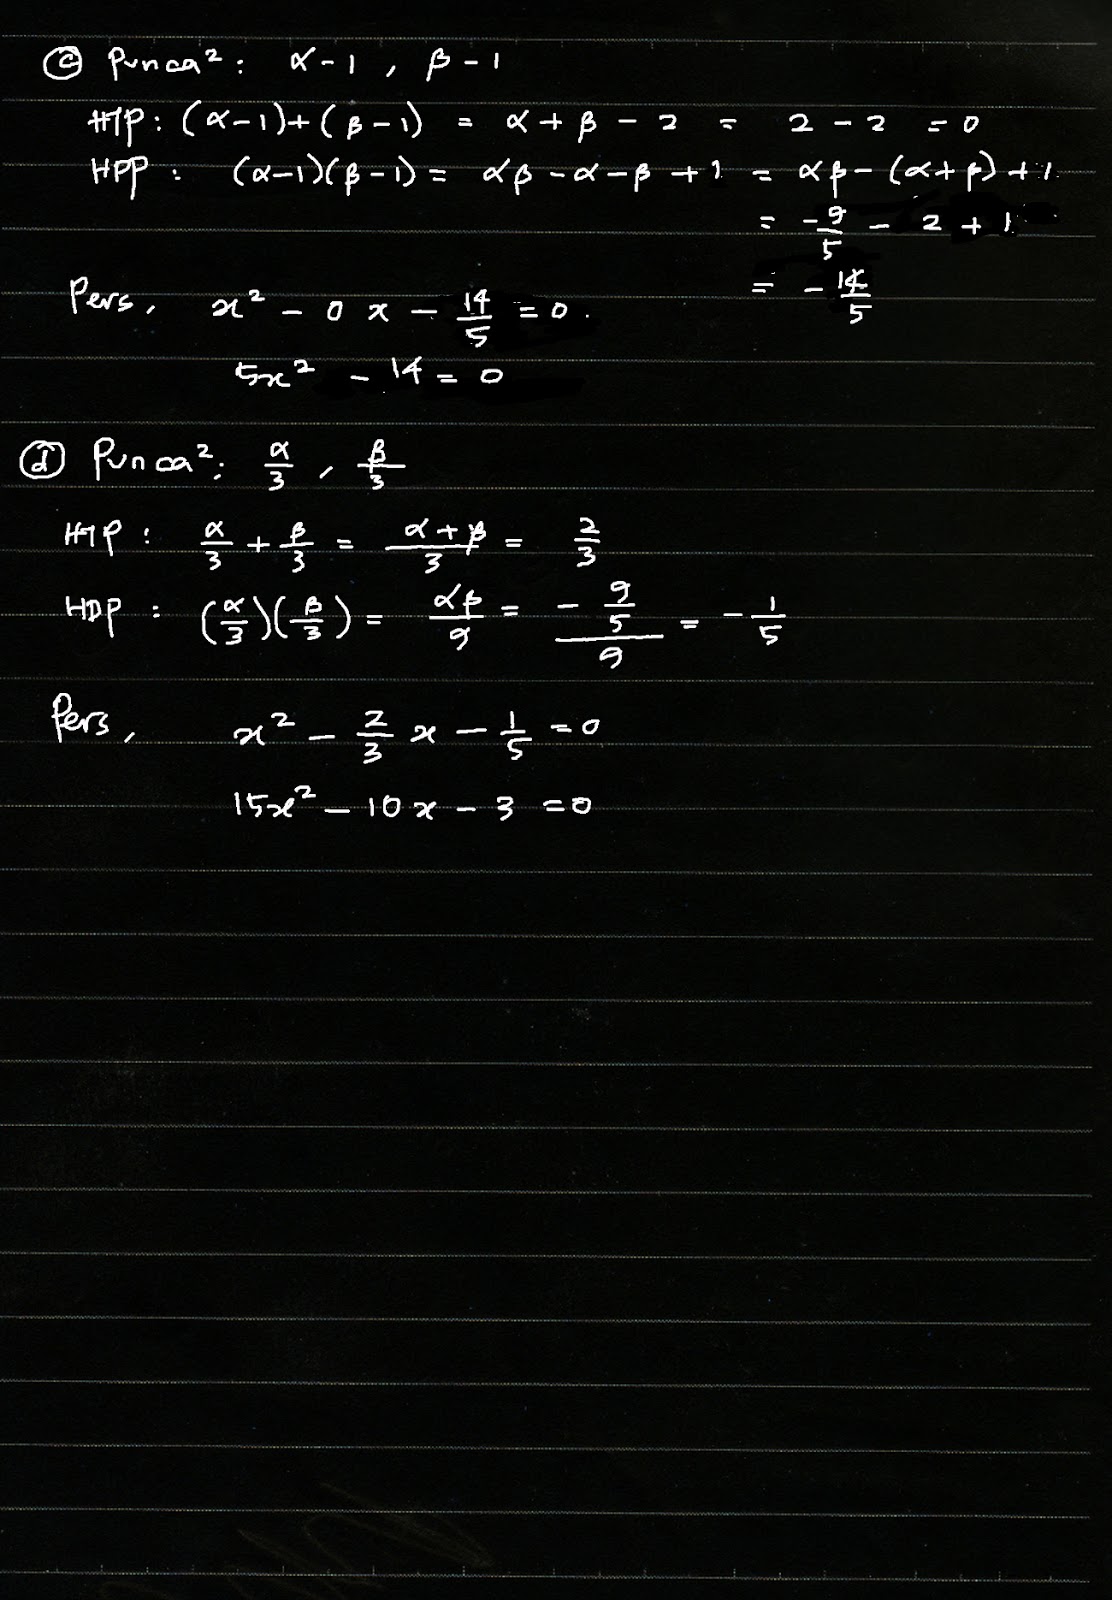 ⓒ Punca²: α-1, β-1
HTP: (α-1)+(β-1) = α+β-2 = 2-2 = 0
HPP: (α-1)(β-1) = αβ-α-β+1 = αβ-(α+β)+1
= -9/5 - 2 + 1
= -14/5
Pers, x² - 0x - 14/5 = 0.
5x² - 14 = 0
ⓓ Punca²: α/3, β/3
HTP: α/3 + β/3 = (α+β)/3 = 2/3
HDP: (α/3)(β/3) = αβ/9 = (-9/5)/9 = -1/5
Pers, x² - 2/3 x - 1/5 = 0
15x² - 10x - 3 = 0